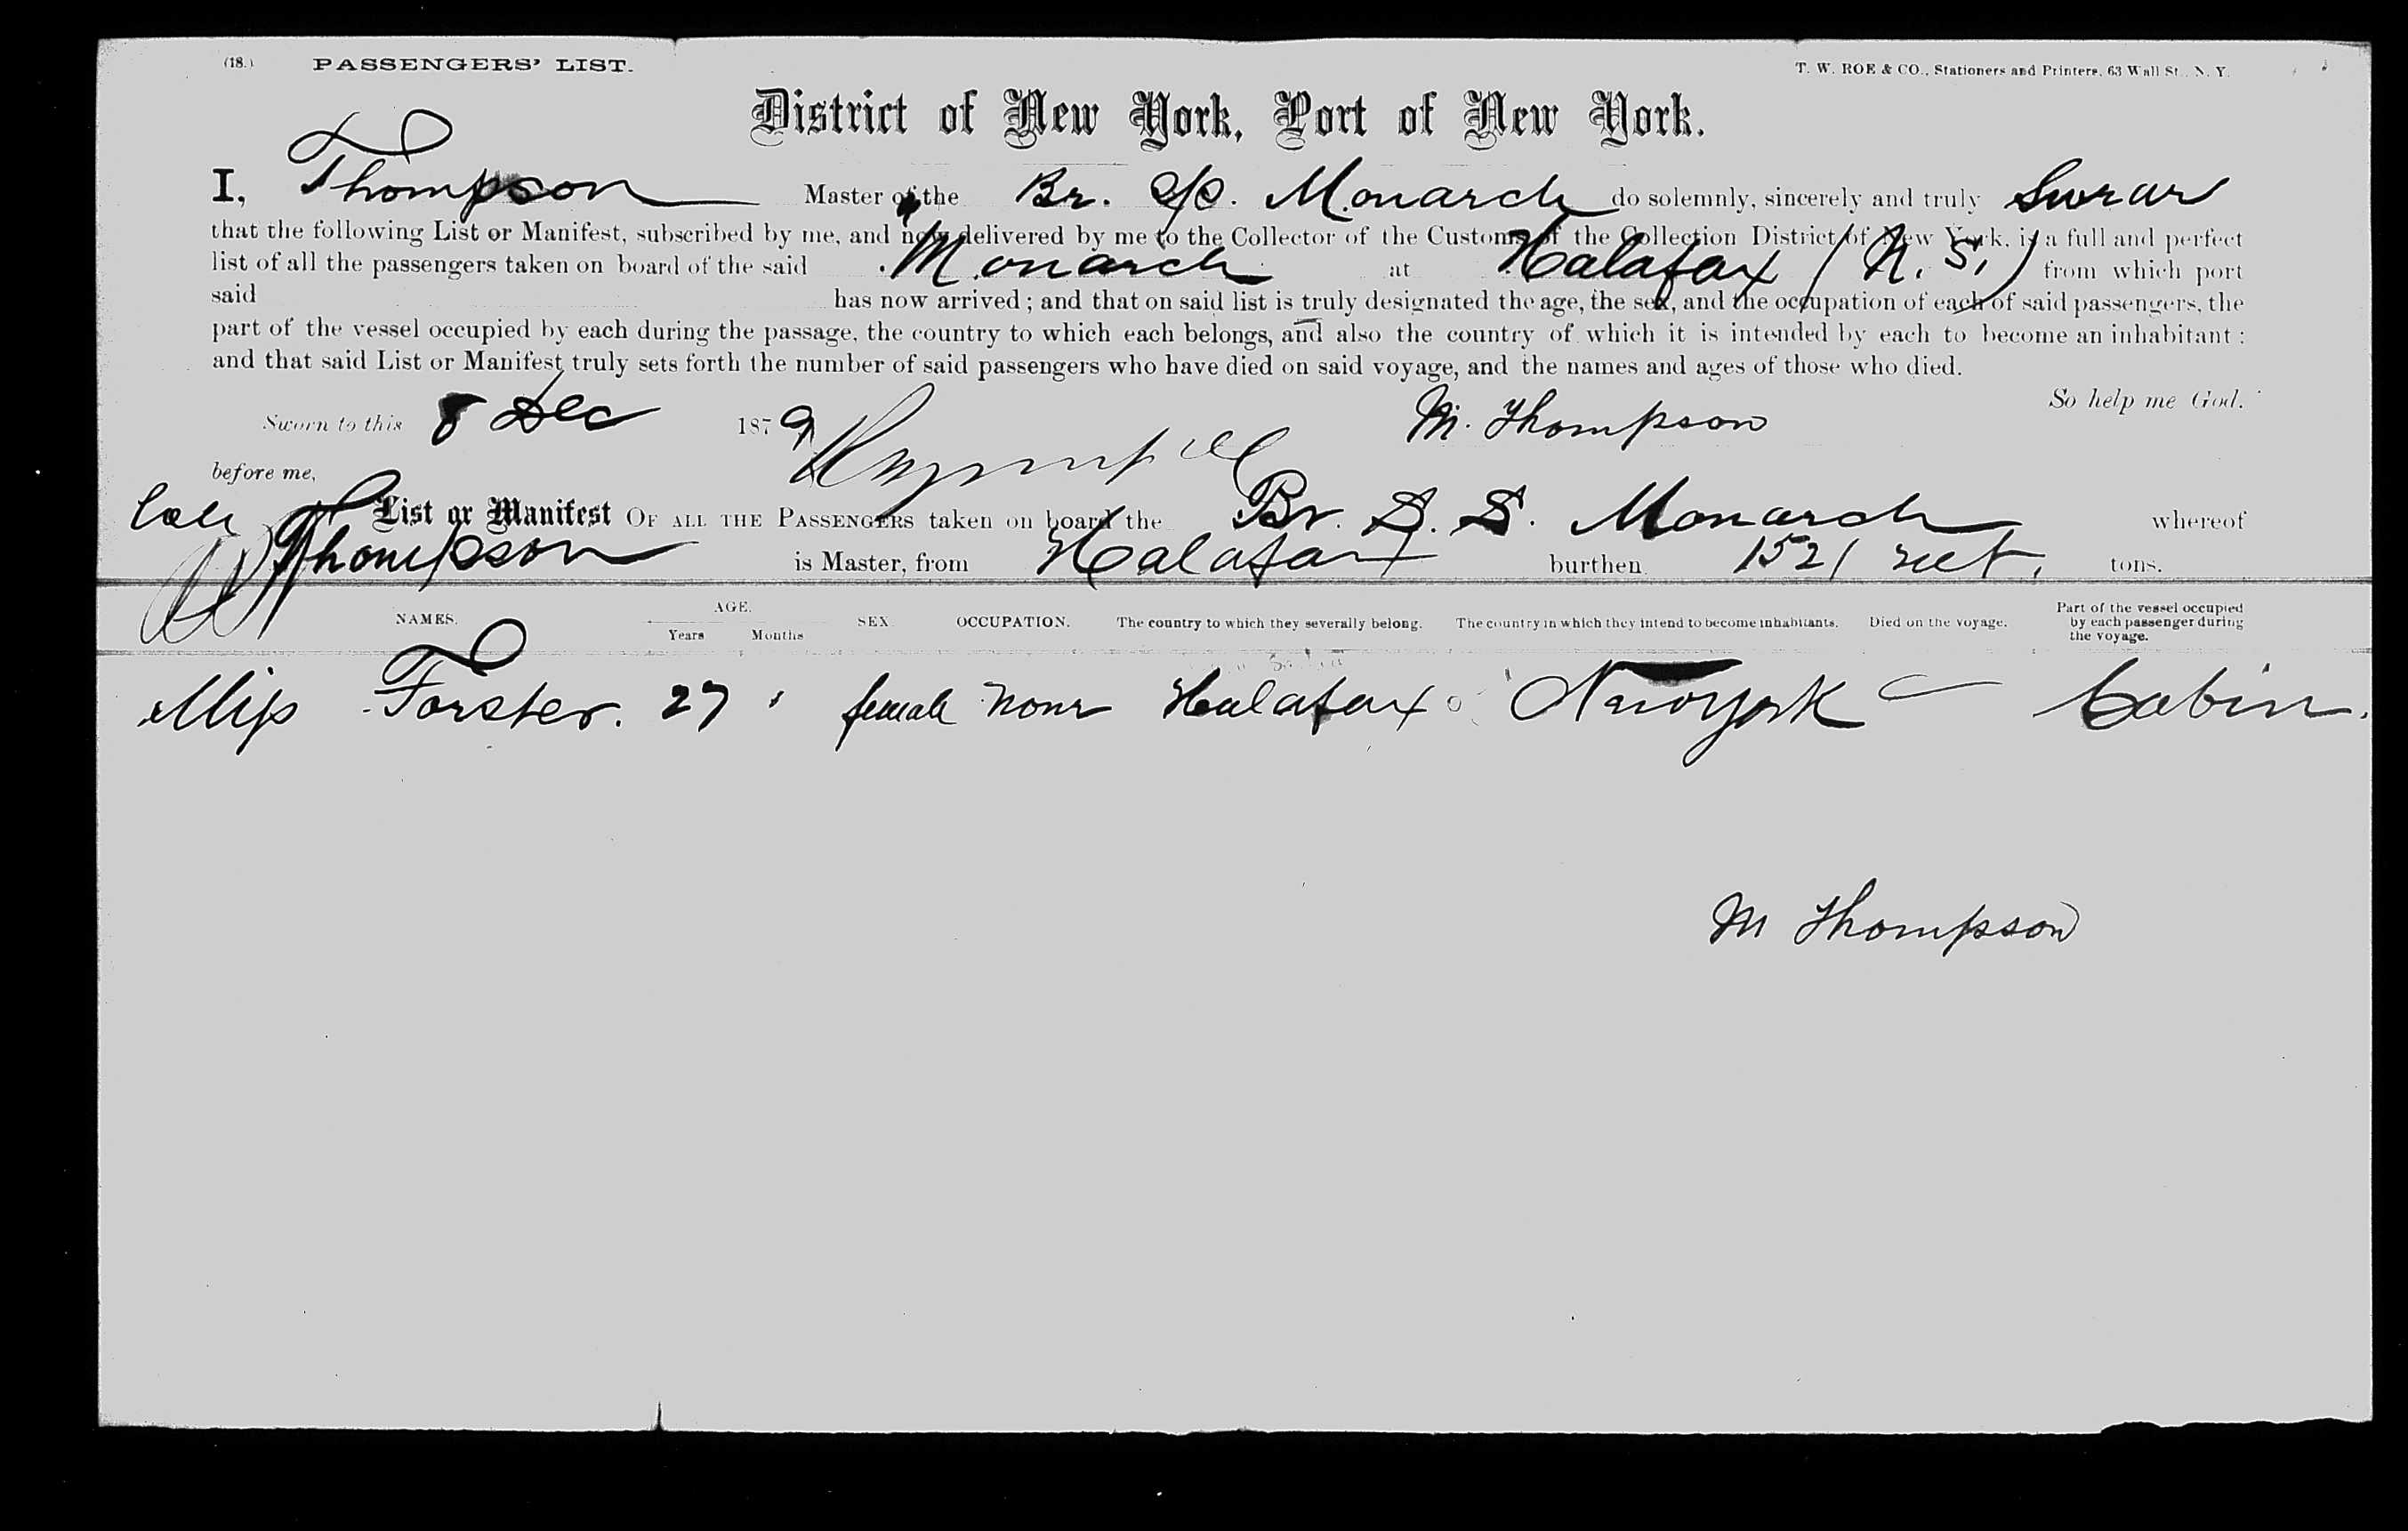 (18.) PASSENGERS' LIST. T. W. ROE & CO., Stationers and Printers, 63 Wall St., N. Y.
District of New York, Port of New York.
I, Thompson Master of the Br. S/S. Monarch do solemnly, sincerely and truly Swear
that the following List or Manifest, subscribed by me, and now delivered by me to the Collector of the Customs of the Collection District of New York, is a full and perfect
list of all the passengers taken on board of the said Monarch at Halafax (N. S.) from which port
said has now arrived; and that on said list is truly designated the age, the sex, and the occupation of each of said passengers, the
part of the vessel occupied by each during the passage, the country to which each belongs, and also the country of which it is intended by each to become an inhabitant:
and that said List or Manifest truly sets forth the number of said passengers who have died on said voyage, and the names and ages of those who died.
So help me God.
Sworn to this 8 Dec 1879 M. Thompson
before me,
List or Manifest OF ALL THE PASSENGERS taken on board the Br. S. S. Monarch whereof
Thompson is Master, from Halafax burthen 1521 tons.
NAMES. AGE. Years Months SEX. OCCUPATION. The country to which they severally belong. The country in which they intend to become inhabitants. Died on the voyage. Part of the vessel occupied by each passenger during the voyage.
Miss Forster. 27 female None Halafax New York Cabin.
M Thompson